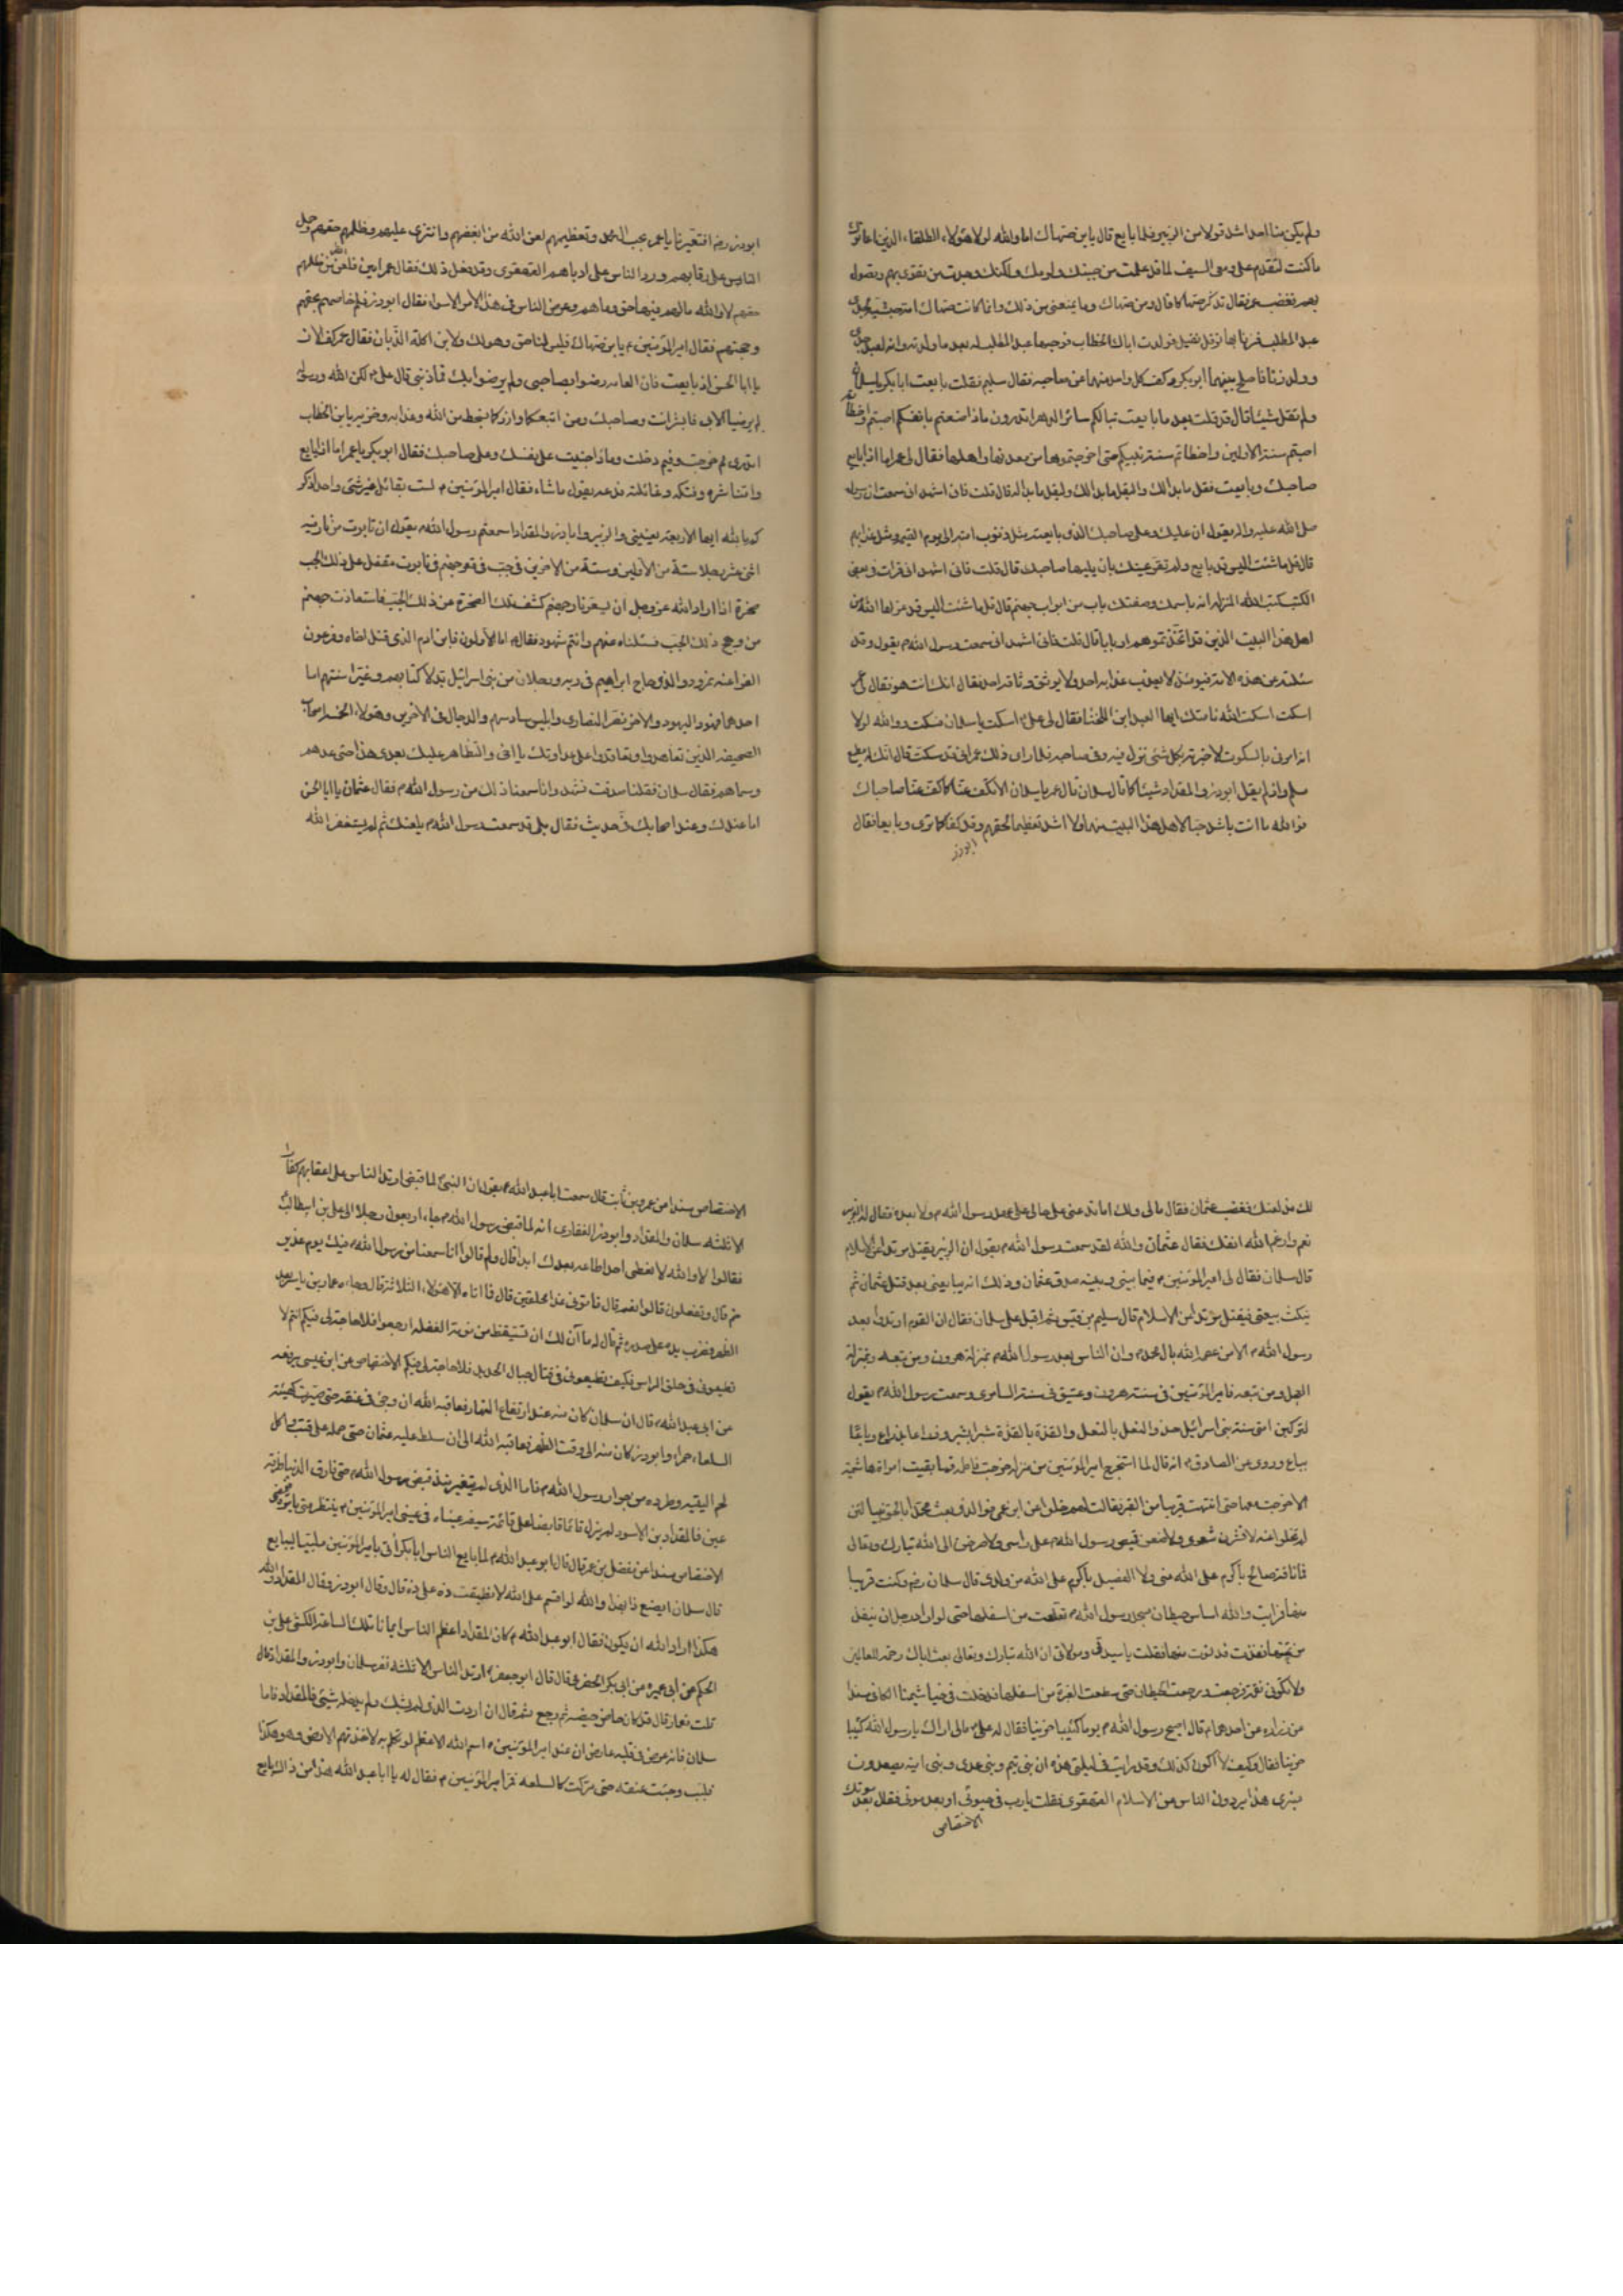 ولم يكن منا احد اشد قولا من الزبير فلما بايع قال يابن ضهاك اما والله لولا هؤلاء الطلقاء الذين اعانوك
ما كنت لتقدم على ومعى السيف لما قد علمت من جبنك ولومك ولكنك وجدت من تقوى بهم وتصول
بهم فغضب عمر فقال تذكر ضهاكا قال ومن ضهاك وما يمنعنى من ذلك وانما كانت ضهاك امة حبشية لجدى
عبد المطلب فزنا بها نفيل فولدت اباك الخطاب فوهبها عبد المطلب له بعد ما ولدته وانه لعبد جدى
وولد زنا فاصلح بينهما ابو بكر وكف كل واحد منهما عن صاحبه فقال سليم فقلت بايعت ابا بكر يا سلمان
ولم تقل شيئا قال قد قلت بعد ما بايعت تبا لكم سائر الدهر اتدرون ماذا صنعتم بانفسكم اصبتم واخطأتم
اصبتم سنة الاولين واخطاتم سنة نبيكم حتى اخرجتموها من معدنها واهلها فقال لى عمر اما اذا بايع
صاحبك وبايعت فقل ما بدا لك وليقل ما بدا له قال قلت فانى اشهد انى سمعت رسول
صلى الله عليه واله يقول ان عليك وعلى صاحبك الذى بايعته مثل ذنوب امته الى يوم القيمة ومثل عذابهم
قال قل ما شئت اليس قد بايع ولم تقر عينك بان يليها صاحبك قال قلت فانى اشهد انى قرات في بعض
الكتب كتب الله المنزلة انه باسمك وصفتك باب من ابواب جهنم قال قل ما شئت اليس قد عزلها الله عن
اهل هذا البيت الذين قد اتخذتموهم اربابا قال قلت فانى اشهد انى سمعت رسول الله يقول وقد
سئلته عن هذه الاية فيومئذ لا يعذب عذابه احد ولا يوثق وثاقه احد فقال انك انت هو فقال لى عمر
اسكت اسكت الله نامتك ايها العبد ابن اللخنا فقال لى على اسكت يا سلمان فسكت والله لولا
انه امرنى بالسكوت لاخبرته بكل شئ نزل فيه وفى صاحبه فلما راى ذلك عمر انى قد سكت قال انك له مطيع
مسلم واذ لم يقل ابوذر والمقداد شيئا كما قال سلمان قال عمر يا سلمان الا تكف عنا كما كف عنا صاحباك
فوالله ما انت باشد حبا لاهل هذا البيت منهما ولا اشد تعظيما لحقهم وقد كفا كما ترى وبايعا فقال
ابوذر
ابوذر رضه افتعيرنا يا عمر بحب ال محمد وتعظيمهم لعن الله من ابغضهم وافترى عليهم وظلمهم حقهم وحمل
الناس على رقابهم ورد الناس على ادبارهم القهقرى وقد فعل ذلك فقال عمر امين فلعن الله من ظلمهم
حقهم لا والله ما لهم فيها حق وما هم وعرض الناس فى هذا الامر الا سوا فقال ابوذر فلم خاصمتم بحقهم
وحجتهم فقال امير المؤمنين ع يابن ضهاك فليس لنا حق وهو لك ولابن اكلة الذبان فقال عمر كف الان
يا ابا الحسن اذ بايعت فان العامه رضوا بصاحبى ولم يرضوا بك فما ذنبى قال على ع لكن الله ورسوله
لم يرضيا الا بى فابشر انت وصاحبك ومن اتبعكما وازركما بسخط من الله وعذابه وخزيه يابن الخطاب
اتدرى مم خرجت وفيم دخلت وماذا جنيت على نفسك وعلى صاحبك فقال ابو بكر يا عمر اما اذ بايع
وامنا شره وفتكه وغائلته فدعه يقول ما شاء فقال امير المؤمنين م لست بقائل غير شئ واحد اذكر
كم بالله ايها الاربعة يعنينى والزبير وابا ذر والمقداد اسمعتم رسول الله يقول ان تابوت من نار فيه
اثنى عشر رجلا ستة من الاولين وستة من الاخرين فى جب فى قعر جهنم فى تابوت مقفل على ذلك الجب
صخرة اذا اراد الله عز وجل ان يسعر نار جهنم كشف تلك الصخرة عن ذلك الجب فاستعاذت جهنم
من وهج ذلك الجب فسئلناه عنهم وانتم شهود فقال اما الاولون فابن ادم الذى قتل اخاه وفرعون
الفراعنه ونمرود والذى حاج ابراهيم فى ربه ورجلان من بنى اسرائيل بدلا كتابهم وغيرا سنتهم اما
احدهما فهود اليهود والاخر نصر النصارى وابليس سادسهم والدجال فى الاخرين وهؤلاء الخمسة اصحاب
الصحيفة الذين تعاهدوا وتعاقدوا على عداوتك يا اخى والتظاهر عليك بعدى هذا حتى عدهم
وسماهم فقال سلمان فقلنا صدقت نشهد وانا سمعنا ذلك من رسول الله فقال عثمان يا ابا الحسن
اما عندك وعند اصحابك فى حديث فقال بلى قد سمعت رسول الله يلعنك ثم لم يستغفر الله
لك منذ لعنك فغضب عثمان فقال مالى ولك اما تدعنى على حالى على عهد رسول الله ولا بعده فقال له الزبير
نعم وارغم الله انفك فقال عثمان والله لقد سمعت رسول الله يقول ان الزبير يقتل مرتدا عن الاسلام
قال سلمان فقال لى امير المؤمنين م فيما بينى وبينه صدق عثمان وذلك انه يبايعنى بعد قتل عثمان ثم
ينكث بيعتى فيقتل مرتدا عن الاسلام قال سليم بن قيس ثم اقبل على سلمان فقال ان القوم ارتدوا بعد
رسول الله الا من عصم الله بال محمد وان الناس بعد رسول الله بمنزلة هرون ومن تبعه وبمنزلة
العجل ومن تبعه فامير المؤمنين فى سنة هرون وعتيق فى سنة السامرى وسمعت رسول الله يقول
لتركبن امتى سنة بنى اسرائيل حذو النعل بالنعل والقذة بالقذة شبرا بشبر وذراعا بذراع وباعا
بباع وروى عن الصادق م انه قال لما استخرج امير المؤمنين من منزله خرجت فاطمة فما بقيت امراة هاشمية
الا خرجت معها حتى انتهت قريبا من القبر فقالت لهم خلوا عن ابن عمى فوالذى بعث محمدا بالحق نبيا لئن
لم تخلوا عنه لانشرن شعرى ولاضعن قميص رسول الله على راسى ولاصرخن الى الله تبارك وتعالى
فما ناقة صالح باكرم على الله منى ولا الفصيل باكرم على الله من ولدى قال سلمان رضه وكنت قريبا
منها فرايت والله اساس حيطان مسجد رسول الله تقلعت من اسفلها حتى لو اراد رجل ان ينفذ
من تحتها لنفذ فدنوت منها فقلت يا سيدتى ومولاتى ان الله تبارك وتعالى بعث اباك رحمة للعالمين
فلا تكونى نقمة فرجعت ورجعت الحيطان حتى سطعت الغبرة من اسفلها فدخلت فى خياشيمنا الكافى مسندا
عن زراره عن احدهما م قال اصبح رسول الله يوما كئيبا حزينا فقال له على م مالى اراك يا رسول الله كئيبا
حزينا فقال وكيف لا اكون كذلك وقد رايت فى ليلتى هذه ان بنى تيم وبنى عدى وبنى امية يصعدون
منبرى هذا يردون الناس عن الاسلام القهقرى فقلت يارب فى حيوتى او بعد موتى فقال بعد موتك
الاختصاص
الاختصاص مسندا عن عمرو بن ثابت قال سمعت ابا عبد الله م يقول ان النبى لما قبض ارتد الناس على اعقابهم كفارا
الا ثلثه سلمان والمقداد وابوذر الغفارى انه لما قبض رسول الله جاء اربعون رجلا الى على بن ابيطالب
فقالوا لا والله لا نعطى احدا طاعه بعدك ابدا قال ولم قالوا انا سمعنا من رسول الله فيك يوم غدير
خم قال وتفعلون قالوا نعم قال فاتونى غدا محلقين قال فما اتاه الا هؤلاء الثلاثة قال وجاءه عمار بن ياسر بعد
الظهر فضرب يده على صدره ثم قال له ما آن لك ان تستيقظ من نومة الغفله ارجعوا فلا حاجة لى فيكم انتم لا
تطيعونى فى حلق الراس فكيف تطيعونى فى قتال جبال الحديد فلا حاجة لى فيكم الاختصاص عن ابن عيسى يرفعه
عن ابى عبد الله م قال ان سلمان كان منه عند ارتفاع النهار فعاقبه الله ان وجئ فى عنقه حتى صيرت كهيئة
السلعة حمراء وابوذر كان منه الى وقت الظهر فعاقبه الله الى ان سلط عليه عثمان حتى حمله على قتب واكل
لحم اليتيه وطرده من جوار رسول الله فاما الذى لم يتغير منذ قبض رسول الله حتى فارق الدنيا طرفة
عين فالمقداد بن الاسود لم يزل قائما قابضا على قائمة سيفه عيناه فى عينى امير المؤمنين م ينتظر متى يامره فيمضى
الاختصاص مسندا عن مفضل بن عمر قال قال ابو عبد الله م لما بايع الناس ابا بكر اتى بامير المؤمنين ملببا ليبايع
قال سلمان ايصنع ذا بهذا والله لو اقسم على الله لانطبقت ذه على ذه قال وقال ابوذر وقال المقداد والله
هكذا اراد الله ان يكون فقال ابو عبد الله م كان المقداد اعظم الناس ايمانا تلك الساعة الكشى على بن
الحكم عن ابن عميره عن ابى بكر الحضرمى قال قال ابو جعفر م ارتد الناس الا ثلثه نفر سلمان وابوذر والمقداد قال
قلت فعمار قال قد كان جاض جيضه ثم رجع ثم قال ان اردت الذى لم يشك ولم يدخله شئ فالمقداد فاما
سلمان فانه عرض فى قلبه عارض ان عند امير المؤمنين م اسم الله الاعظم لو تكلم به لاخذتهم الارض وهو هكذا
فلبب وجئت عنقه حتى تركت كالسلعه فمر امير المؤمنين م فقال له يا ابا عبد الله هذا من ذاك بايع